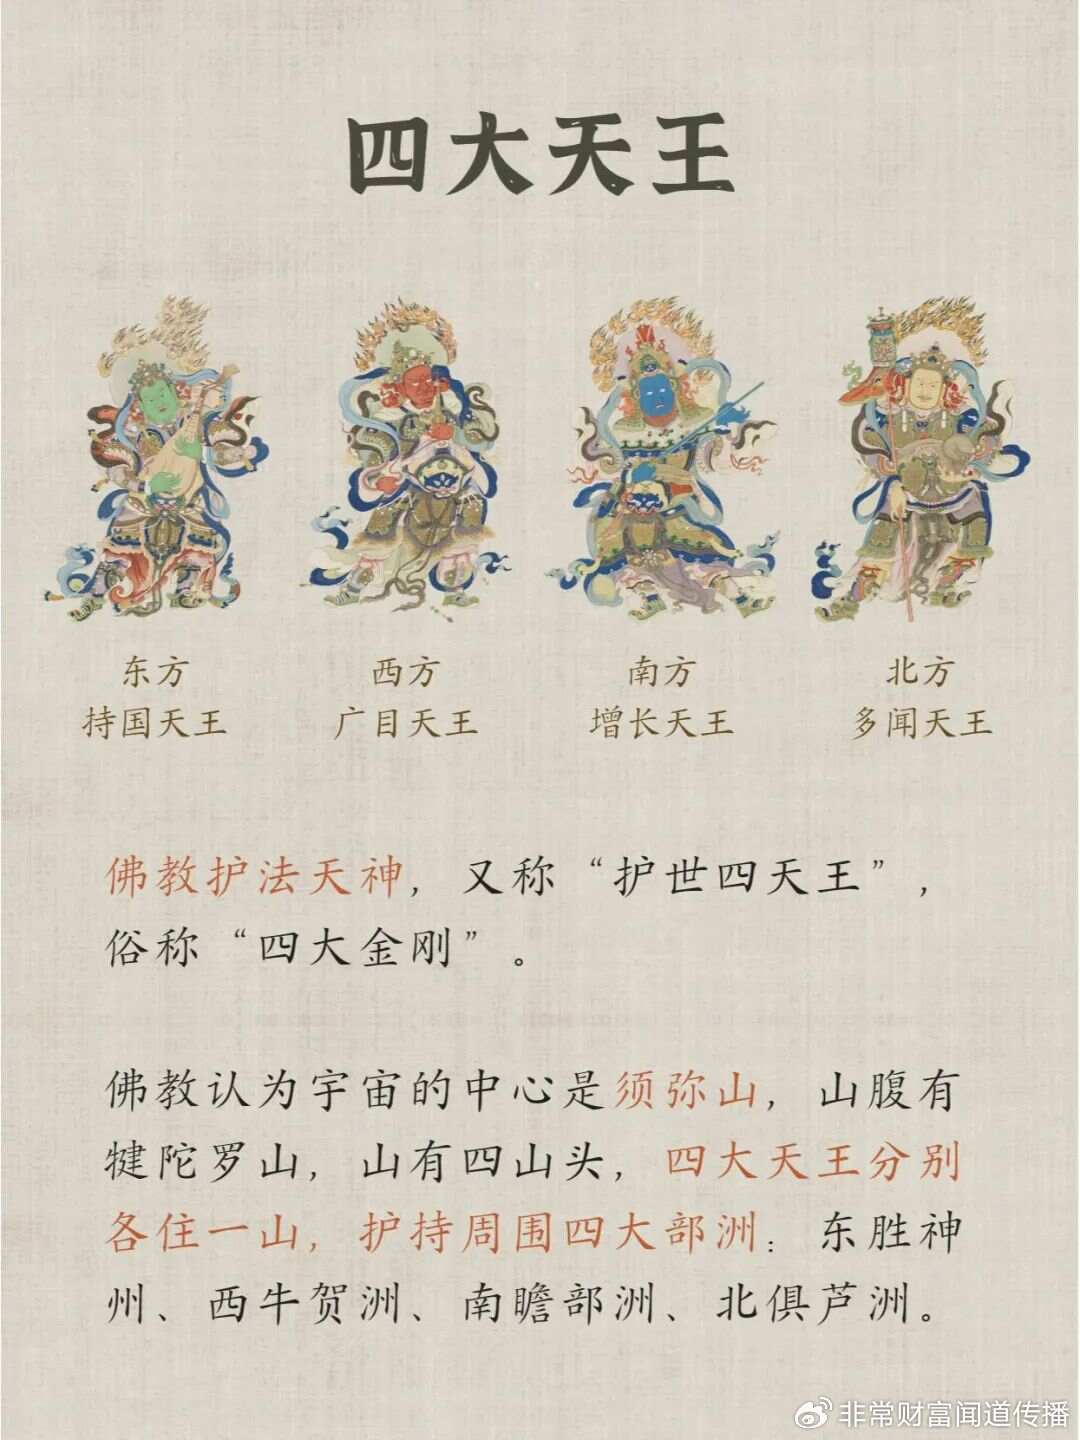 四大天王
东方 西方 南方 北方
持国天王 广目天王 增长天王 多闻天王
佛教护法天神，又称“护世四天王”，
俗称“四大金刚”。
佛教认为宇宙的中心是须弥山，山腹有
犍陀罗山，山有四山头，四大天王分别
各住一山，护持周围四大部洲：东胜神
州、西牛贺洲、南瞻部洲、北俱芦洲。
非常财富闻道传播